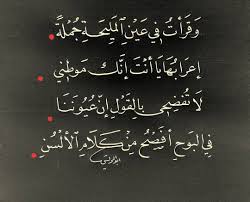 وَقَرَأْتُ فِي عَيْنِ المَلِيحَةِ جُمْلَةً
إِعْرَابُهَا يَا أَنْتَ إِنَّكَ مَوْطِنِي
لَا تُفْصِحِي بِالقَوْلِ إِنَّ عُيُونَنَا
فِي البَوْحِ أَفْصَحُ مِنْ كَلَامِ الأَلْسُنِ